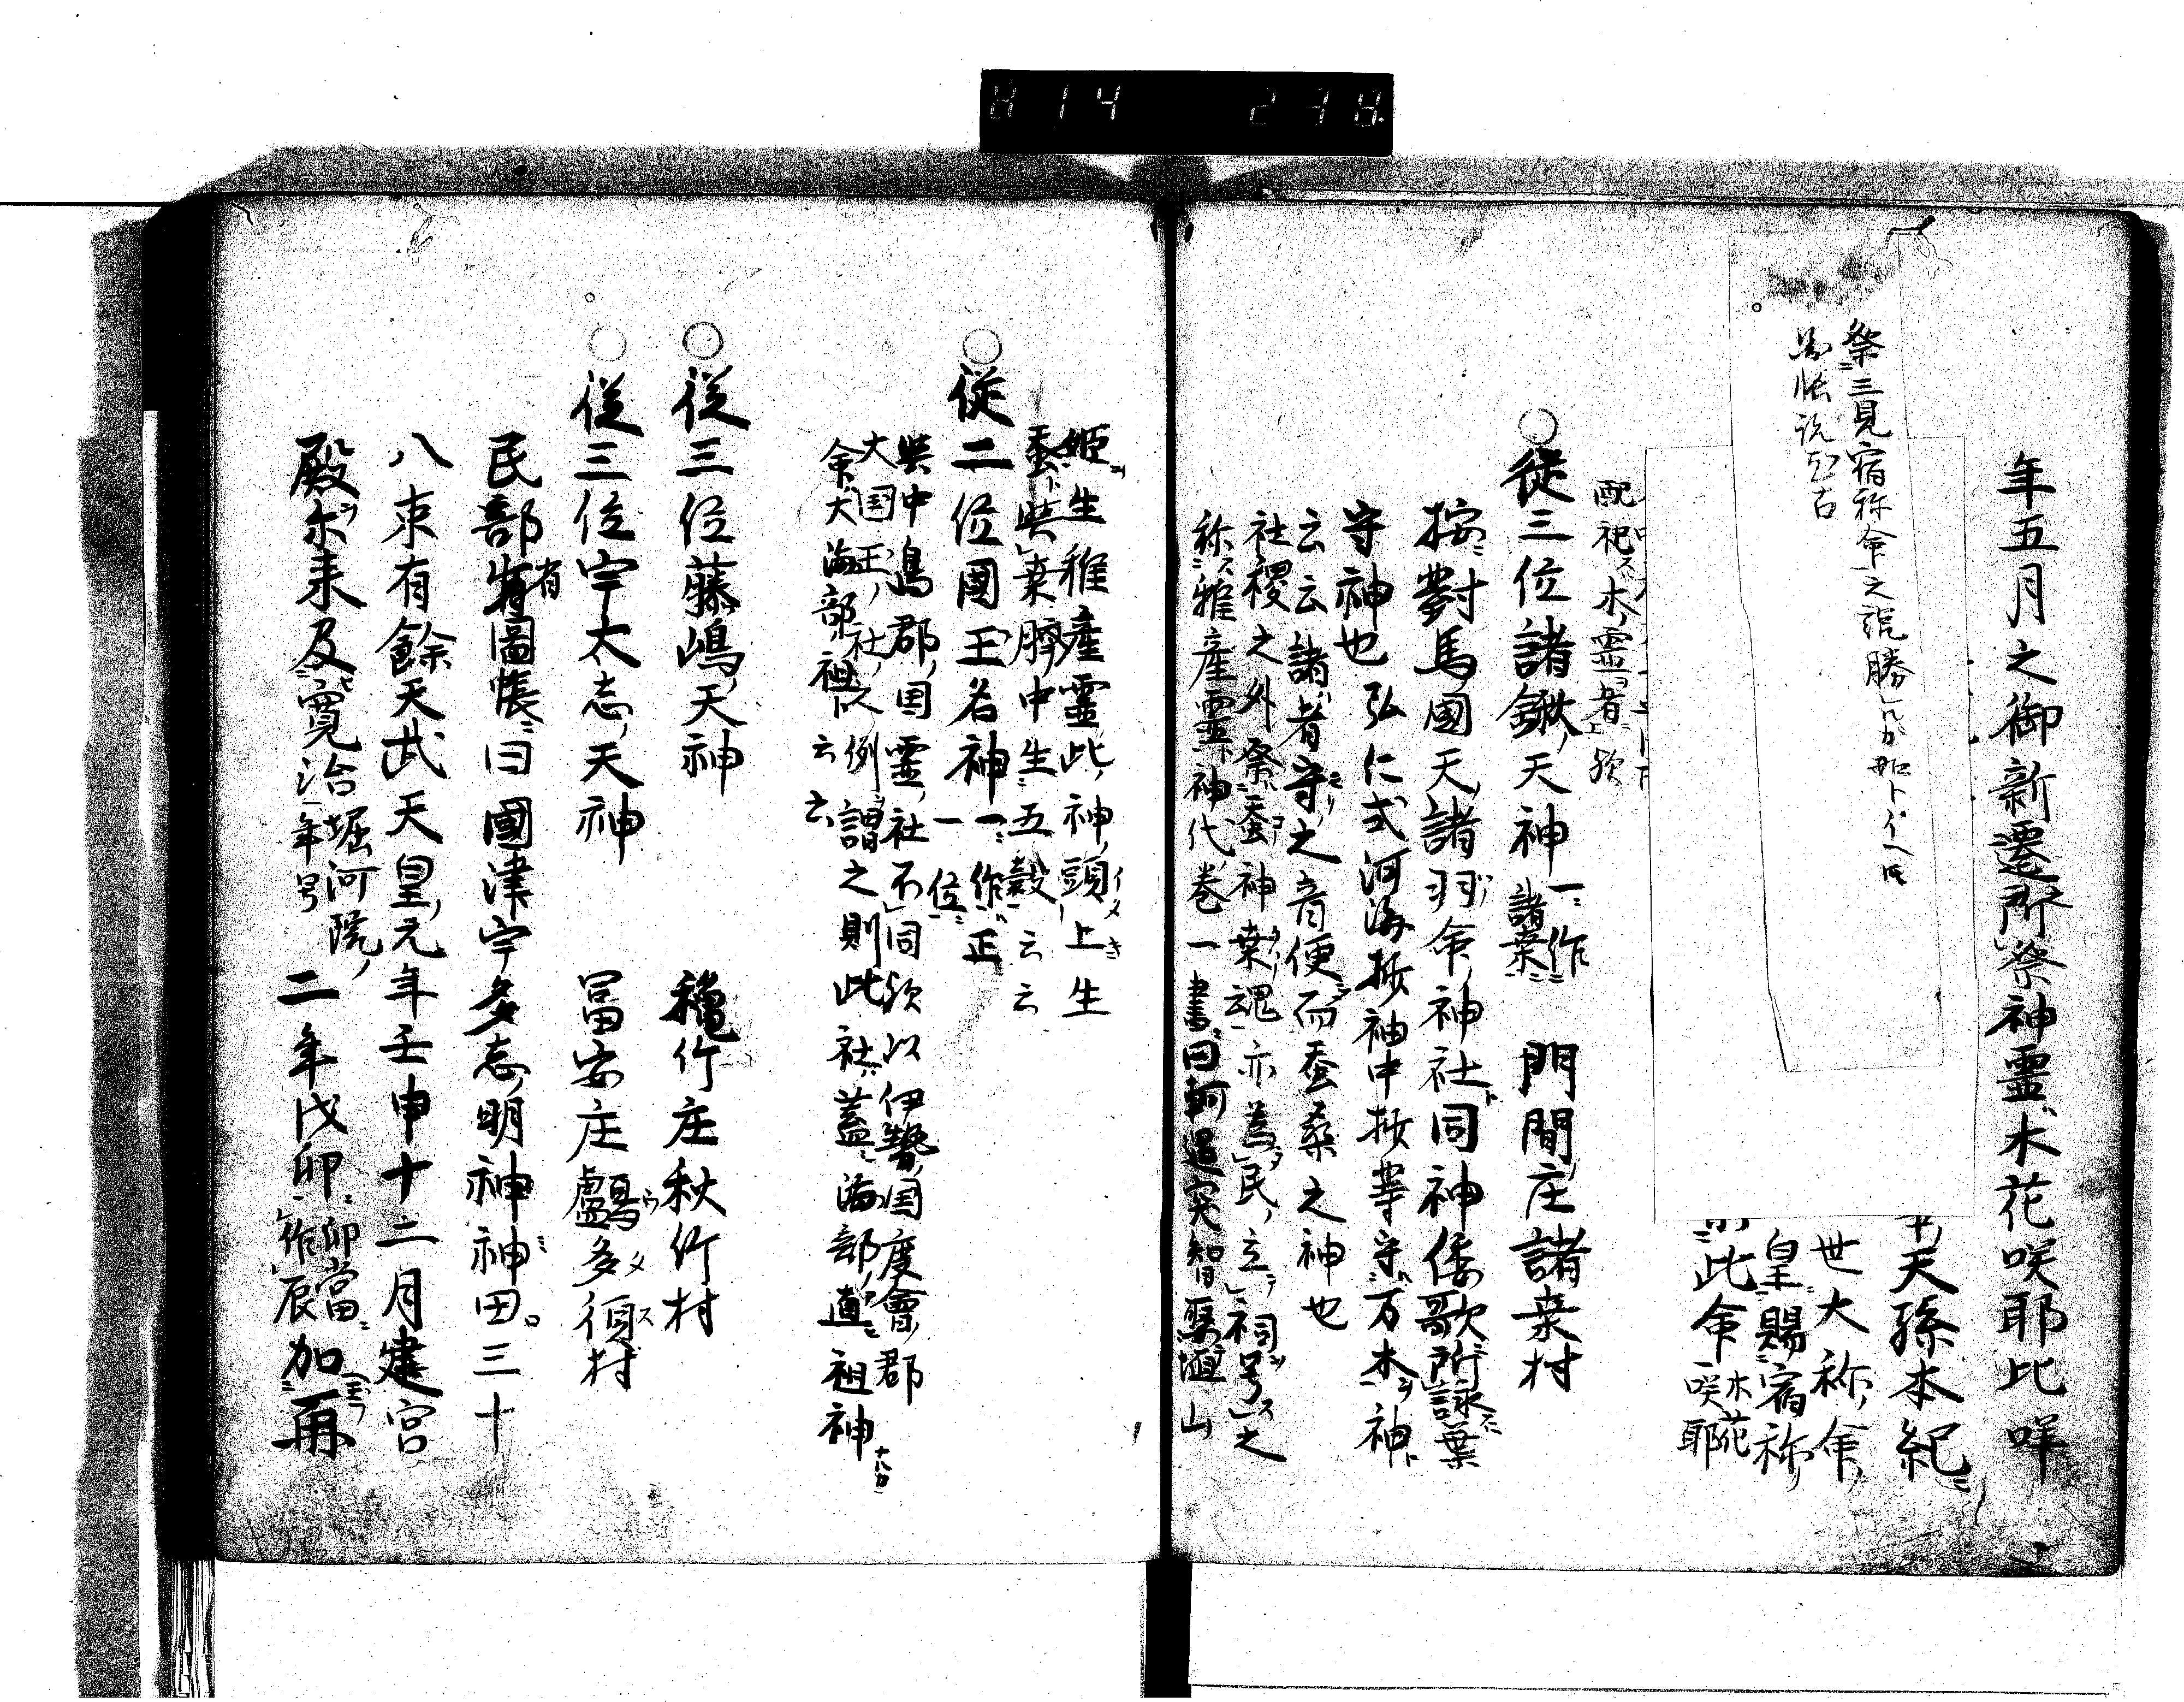 年五月之御新遷所祭神霊木花咲耶比咩
祭三見宿祢命之説勝
天孫本紀
世大祢命
皇賜宿祢
此命木花咲耶
配祀木霊者歟
○従三位諸鍬天神一作諸桒 門間庄諸桒村
按對馬國天諸羽命神社同神倭歌所詠葉
守神也弘仁式河海抄袖中抄等守万木神
云云諸者守之音便而蚕桑之神也
社稷之外祭蚕神桒魂亦為民立祠号之
称稚産霊神代巻一書曰軻遇突智娶埴山
姫生稚産霊此神頭上生
蚕與桒臍中生五穀云云
○従二位國玉名神一作正一位
與中島郡国霊社不同歟以伊勢国度會郡
大国玉社之例謂之則此社蓋海部直祖神
命大海部祖云云
○従三位藤嶋天神 穐竹庄秋竹村
○従三位宇太志天神 冨安庄鸕多須村
民部省圖帳曰國津宇多志明神神田三十
八束有餘天武天皇元年壬申十二月建宮
殿尓来及寛治堀河院年号二年戊卯卯當作辰加再